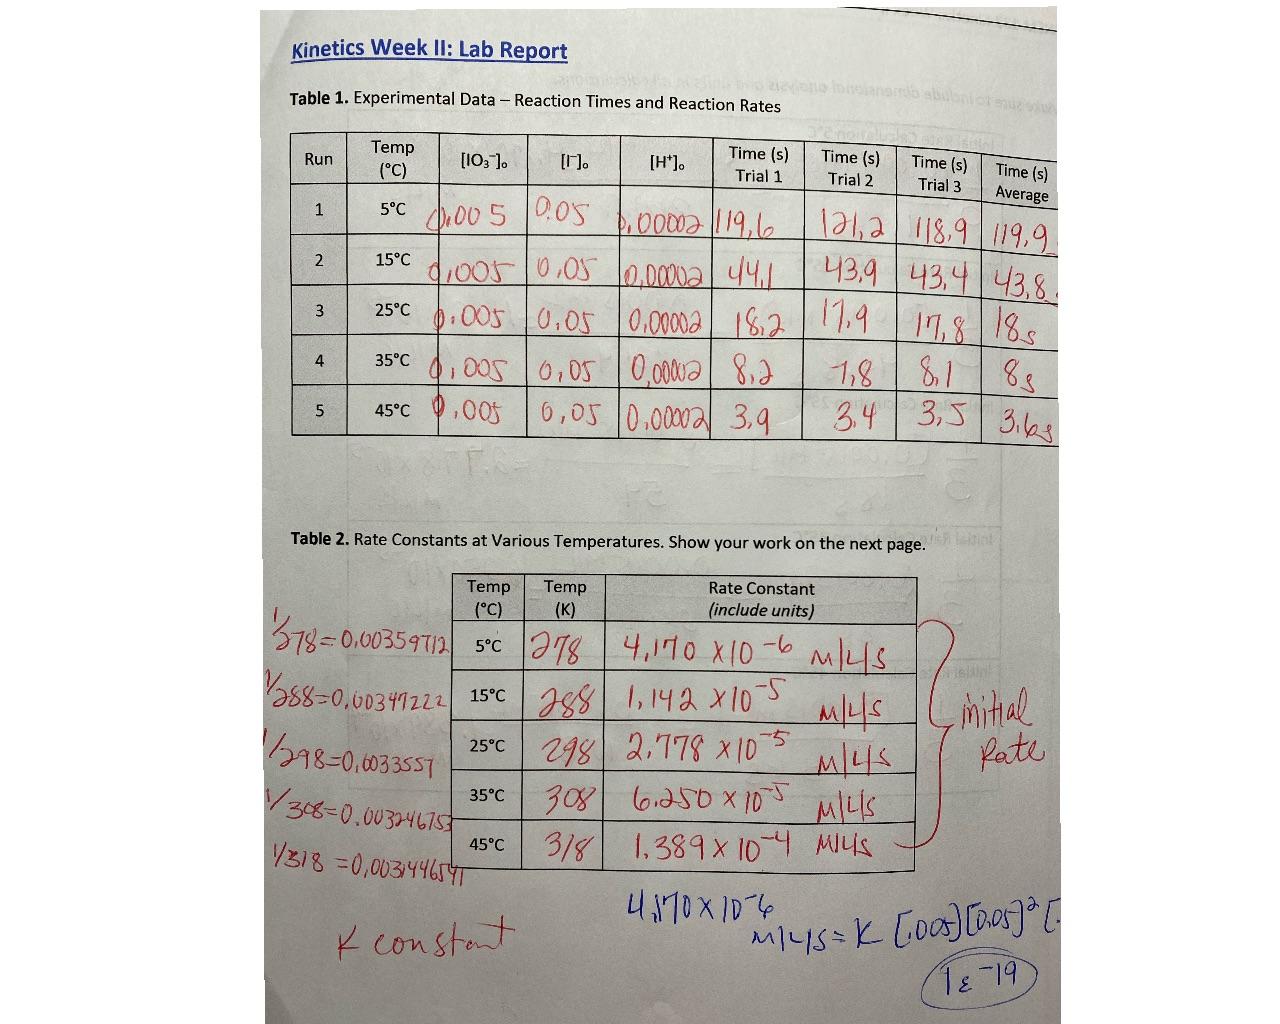 Kinetics Week II: Lab Report
Table 1. Experimental Data – Reaction Times and Reaction Rates
Run Temp (°C) [IO₃⁻]₀ [I⁻]₀ [H⁺]₀ Time (s) Trial 1 Time (s) Trial 2 Time (s) Trial 3 Time (s) Average
1 5°C 0.005 0.05 0.00002 119.6 121.2 118.9 119.9
2 15°C 0.005 0.05 0.00002 44.1 43.9 43.4 43.8
3 25°C 0.005 0.05 0.00002 18.2 17.9 17.8 18s
4 35°C 0.005 0.05 0.00002 8.2 7.8 8.1 8s
5 45°C 0.005 0.05 0.00002 3.9 3.4 3.5 3.6s
Table 2. Rate Constants at Various Temperatures. Show your work on the next page.
Temp (°C) Temp (K) Rate Constant (include units)
1/278=0.00359712 5°C 278 4.170 x10⁻⁶ M/L/S
1/288=0.00347222 15°C 288 1.142 x10⁻⁵ M/L/S
1/298=0.0033557 25°C 298 2.778 x10⁻⁵ M/L/S
1/308=0.003246753 35°C 308 6.250 x 10⁻⁵ M/L/S
1/318=0.0031446541 45°C 318 1.389 x 10⁻⁴ M/L/S
initial Rate
4.170 x 10⁻⁶ M/L/S = K [.005][0.05]² [.
K constant